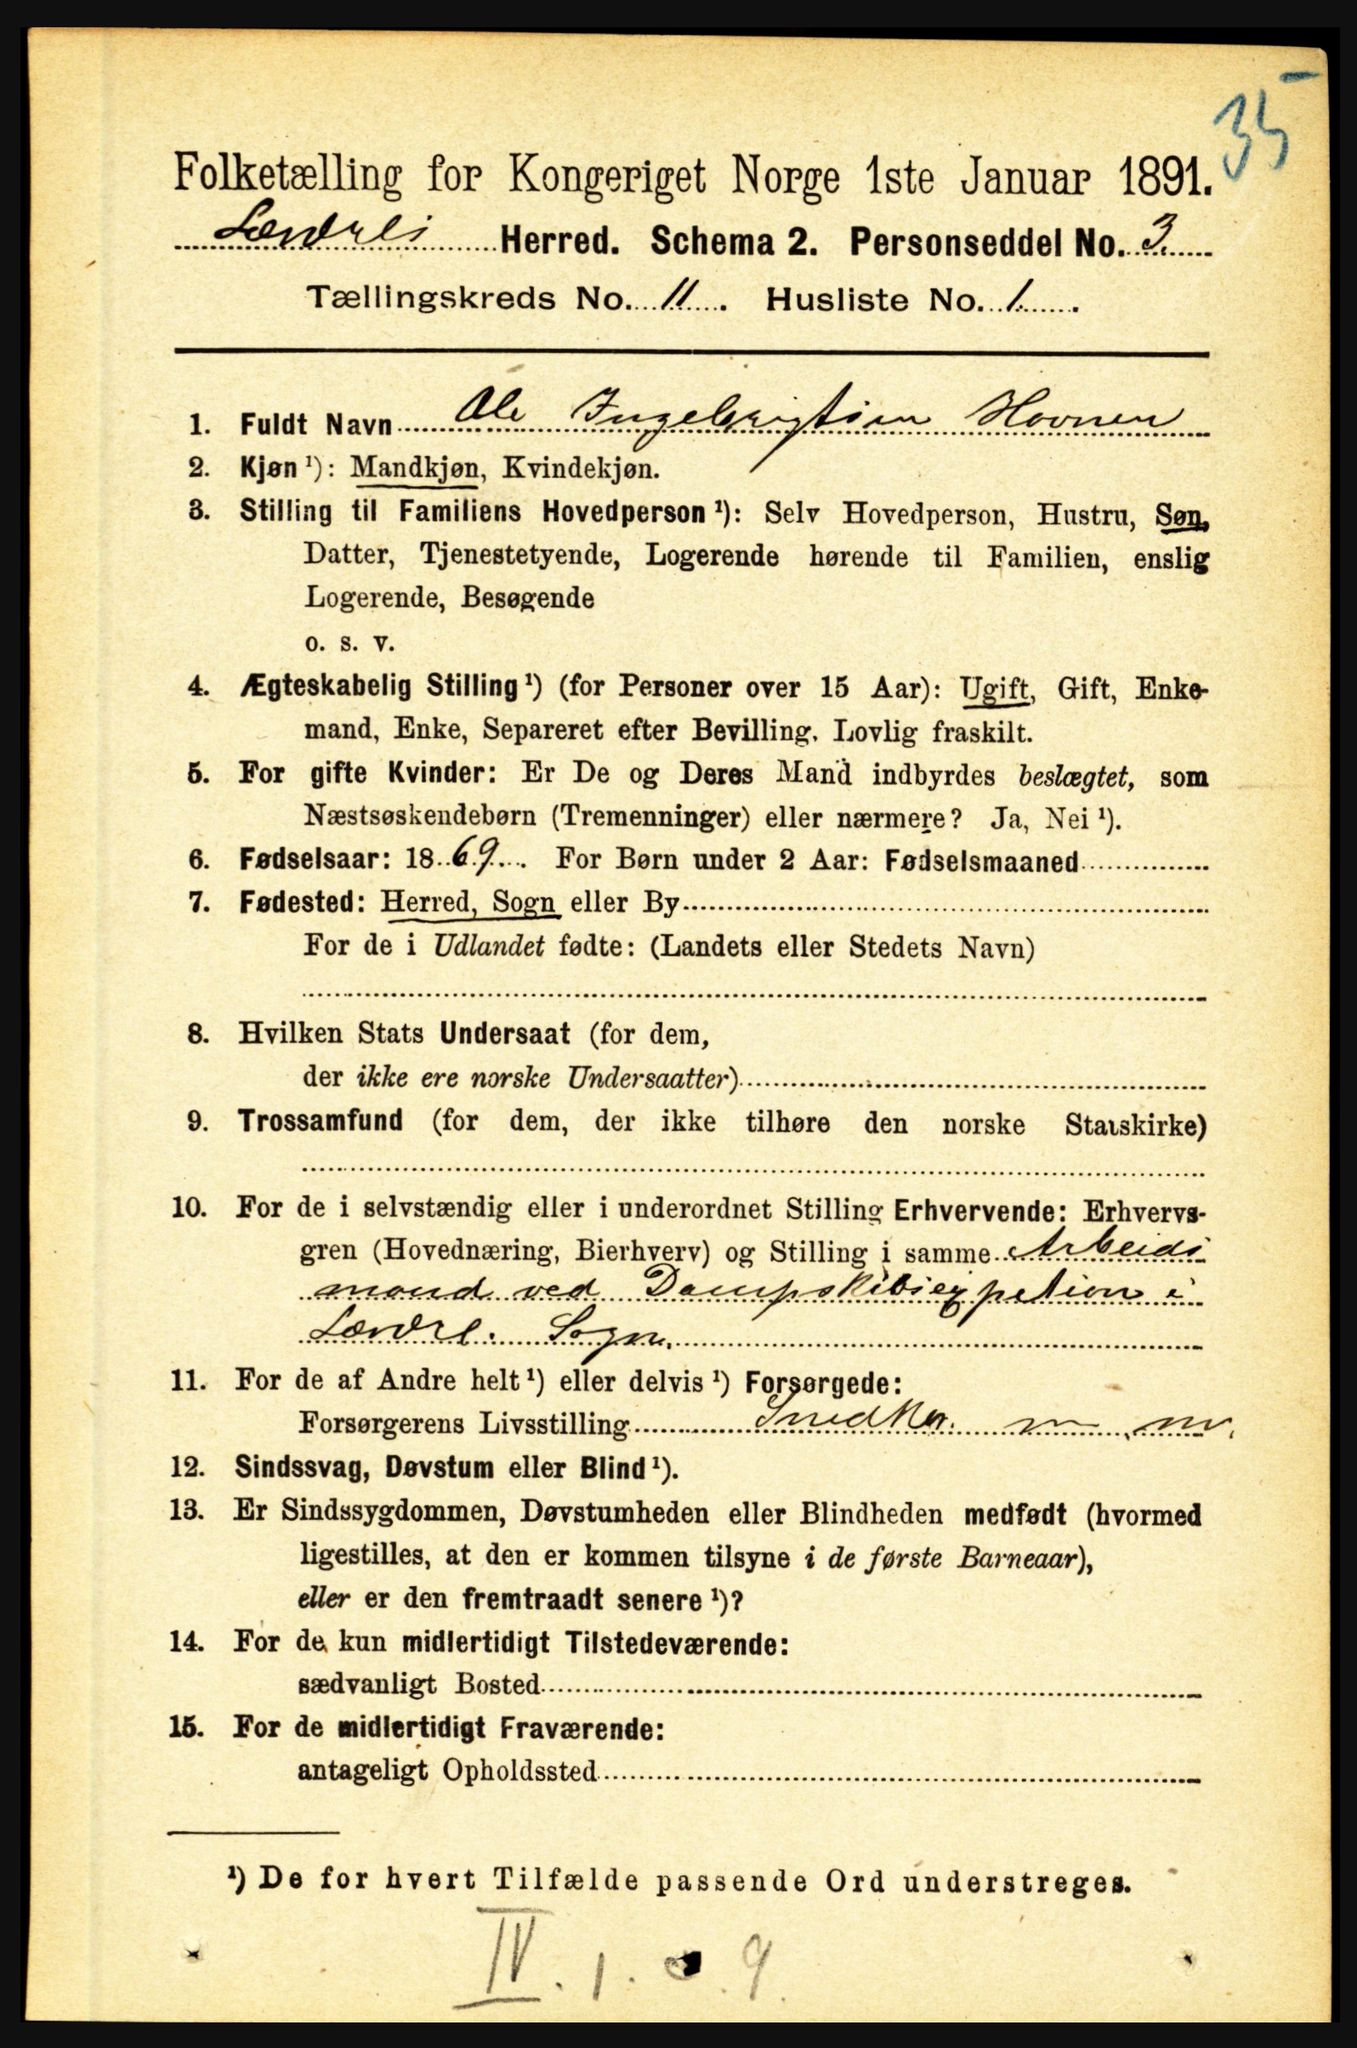 35
Folketælling for Kongeriget Norge 1ste Januar 1891.
Lærdals Herred. Schema 2. Personseddel No. 3.
Tællingskreds No. 11. Husliste No. 1.
1. Fuldt Navn Ole Ingebrigtsen Hovnen
2. Kjøn ¹): Mandkjøn, Kvindekjøn.
3. Stilling til Familiens Hovedperson ¹): Selv Hovedperson, Hustru, Søn,
Datter, Tjenestetyende, Logerende hørende til Familien, enslig
Logerende, Besøgende
o. s. v.
4. Ægteskabelig Stilling ¹) (for Personer over 15 Aar): Ugift, Gift, Enke-
mand, Enke, Separeret efter Bevilling. Lovlig fraskilt.
5. For gifte Kvinder: Er De og Deres Mand indbyrdes beslægtet, som
Næstsøskendebørn (Tremenninger) eller nærmere? Ja, Nei ¹).
6. Fødselsaar: 1869. For Børn under 2 Aar: Fødselsmaaned
7. Fødested: Herred, Sogn eller By
For de i Udlandet fødte: (Landets eller Stedets Navn)
8. Hvilken Stats Undersaat (for dem,
der ikke ere norske Undersaatter)
9. Trossamfund (for dem, der ikke tilhøre den norske Statskirke)
10. For de i selvstændig eller i underordnet Stilling Erhvervende: Erhvervs-
gren (Hovednæring, Bierhverv) og Stilling i samme Arbeids
mand ved Dampskibsexpetion i
Lærdal. Sogn.
11. For de af Andre helt ¹) eller delvis ¹) Forsørgede:
Forsørgerens Livsstilling Snedker. m. m.
12. Sindssvag, Døvstum eller Blind ¹).
13. Er Sindssygdommen, Døvstumheden eller Blindheden medfødt (hvormed
ligestilles, at den er kommen tilsyne i de første Barneaar),
eller er den fremtraadt senere ¹)?
14. For de kun midlertidigt Tilstedeværende:
sædvanligt Bosted
15. For de midlertidigt Fraværende:
antageligt Opholdssted
¹) De for hvert Tilfælde passende Ord understreges.
IV. 1. 9